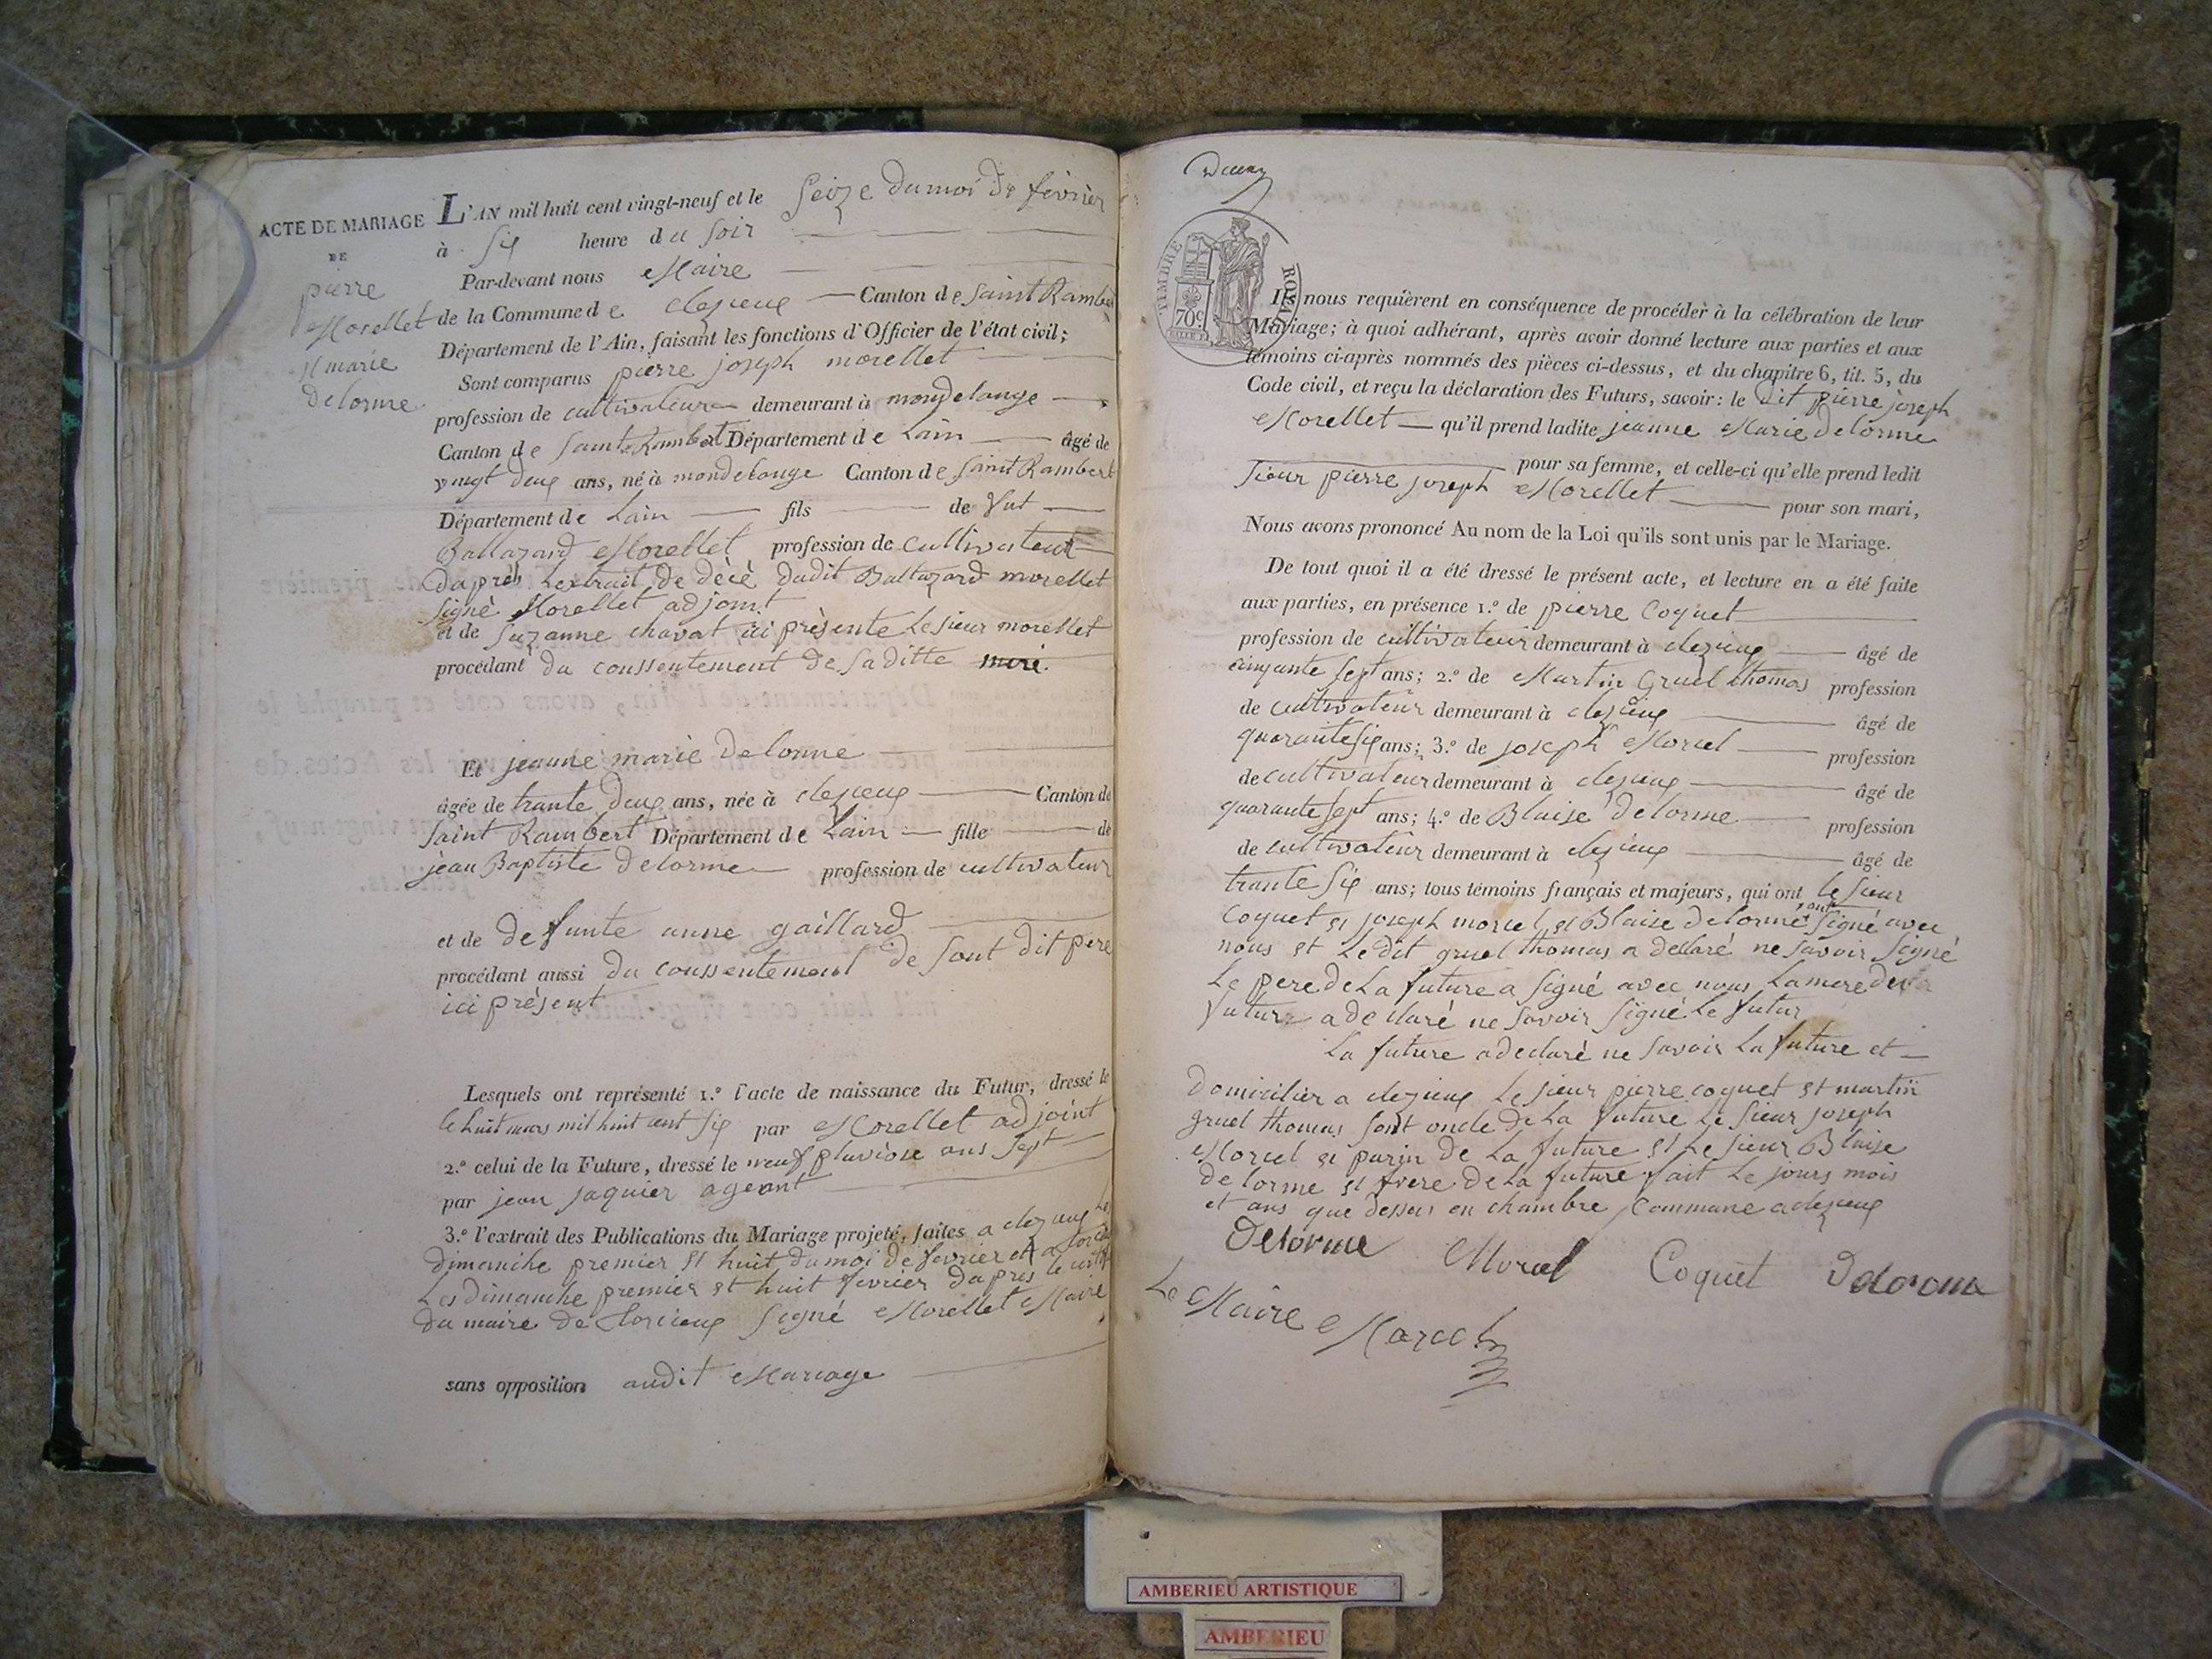 ACTE DE MARIAGE
DE
pierre
Morellet
et marie
delorme
L'AN mil huit cent vingt-neuf et le Seize du moi de fevrier
à Six heure du Soir
Par-devant nous Maire
de la Commune de clezieux Canton de Saint Rambert
Département de l'Ain, faisant les fonctions d'Officier de l'état civil;
Sont comparus pierre joseph morellet
profession de cultivateur demeurant à mondelange
Canton de Saint Rambert Département de Lain âgé de
vingt deux ans, né à mondelange Canton de Saint Rambert
Département de Lain fils de fut
Baltazard Morellet profession de cultivateur
daprès Lextrait de décè dudit Baltazard morellet
Signé Morellet adjoint
et de Suzanne chavat ici présente Le sieur morellet
procédant du conssentement de Saditte meré.
Et jeanne marie delorme
âgée de trante deux ans, née à clezieux Canton de
Saint Rambert Département de Lain fille de
jean Baptiste delorme profession de cultivateur
et de defunte anne gaillard
procédant aussi du conssentement de Sont dit pere
ici présent
Lesquels ont représenté 1.º l'acte de naissance du Futur, dressé le
le huit mars mil huit cent Six par Morellet adjoint
2.º celui de la Future, dressé le neuf pluviose ans Sept
par jean jaquier ageant
3.º l'extrait des Publications du Mariage projeté, faites a clezieux Les
dimanche premier et huit du moi de fevrier et a torcieu
Les dimanche premier et huit fevrier dapres le
du maire de torcieux Signé Morellet Maire
sans opposition audit Mariage
TIMBRE ROYAL
70c
Ils nous requièrent en conséquence de procéder à la célébration de leur
Mariage; à quoi adhérant, après avoir donné lecture aux parties et aux
témoins ci-après nommés des pièces ci-dessus, et du chapitre 6, tit. 5, du
Code civil, et reçu la déclaration des Futurs, savoir: le dit pierre joseph
Morellet qu'il prend ladite jeanne Marie delorme
pour sa femme, et celle-ci qu'elle prend ledit
Sieur pierre joseph Morellet pour son mari,
Nous avons prononcé Au nom de la Loi qu'ils sont unis par le Mariage.
De tout quoi il a été dressé le présent acte, et lecture en a été faite
aux parties, en présence 1.º de pierre Coquet
profession de cultivateur demeurant à clezieux âgé de
cinquante Sept ans; 2.º de Martin Gruel thomas profession
de cultivateur demeurant à clezieux âgé de
quarante Six ans; 3.º de joseph Morel profession
de cultivateur demeurant à clezieux âgé de
quarante Sept ans; 4.º de Blaise delorme profession
de cultivateur demeurant à clezieux âgé de
trante Six ans; tous témoins français et majeurs, qui ont le Sieur
coquet et joseph morel et Blaise delorme ont Signé avec
nous et Le dit gruel thomas a declaré ne Savoir Signé
Le pere de La future a Signé avec nous La mere du
futur a declaré ne Savoir Signé Le futur
La future a declaré ne Savoir La future et
domicilier a clezieux Le sieur pierre coquet et martin
gruel thomas Sont oncle de La future Le Sieur joseph
Morel et parin de La future et Le Sieur Blaise
delorme et frere de La future fait Le jours mois
et ans que dessus en chambre Commune a clezieux
Delorme Morel Coquet Delorme
Le Maire Marcel
AMBERIEU ARTISTIQUE
AMBERIEU